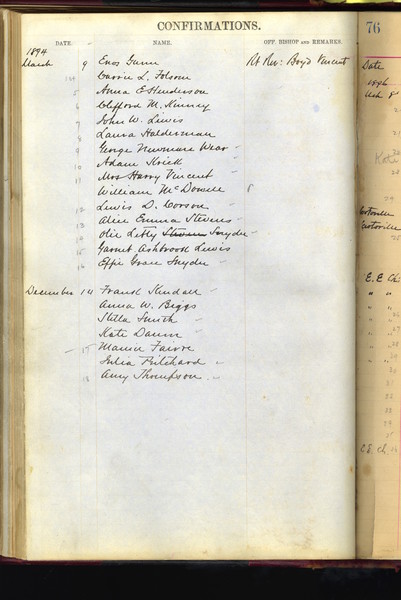 CONFIRMATIONS.
DATE. NAME. OFF. BISHOP AND REMARKS.
1894
March 9 Enos Gunn Rt Rev: Boyd Vincent
Carrie L. Folsom
5 Anna E Henderson
6 Clifford M. Kinney
7 John W. Lewis
8 Laura Halderman
9 George Newmare Wear
10 Adam Krick
11 Mrs Harry Vincent
William McDowell
12 Lewis D. Corson
13 Alice Emma Stevens
Olie Letty Stevens Snyder
15 Garnet Ashbrook Lewis
16 Effie Grace Snyder
December 14 Kendall
Anna W. Biggs
Stella Smith
Kate Damm
17 Maurice Faivre
Julia Pritchard
18 Amy Thompson
76
Date
1896
Mch 8
Kate
E. E. Ch.
" "
" "
" "
" "
" "
C.E. Ch.